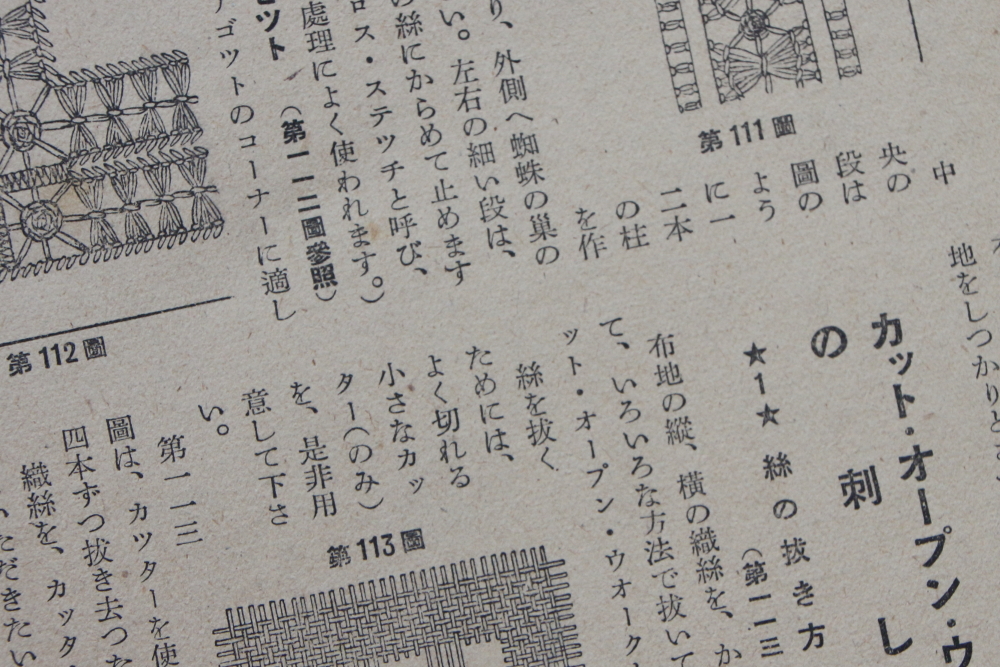 第111圖
中
央の
段は
圖の
よう
に一
二本
の柱
を作
り、外側へ蜘蛛の巣の
い。左右の細い段は、
の絲にからめて止めます
ロス・ステッチと呼び、
處理によく使われます。)
ゴツトのコーナーに適し
(第一一二圖參照)
第112圖
地をしつかりと
カット・オープン・ウ
の
刺
し
★1★ 絲の拔き方
(第一一三
布地の縱、橫の織絲を、か
て、いろいろな方法で拔いて
ット・オープン・ウオーク
絲を拔く
ためには、
よく切れる
小さなカッ
ター(のみ)
を、是非用
意して下さ
い。
第一一三
圖は、カッターを使
四本ずつ拔き去つた
織絲を、カッタ
ただきたい
第113圖